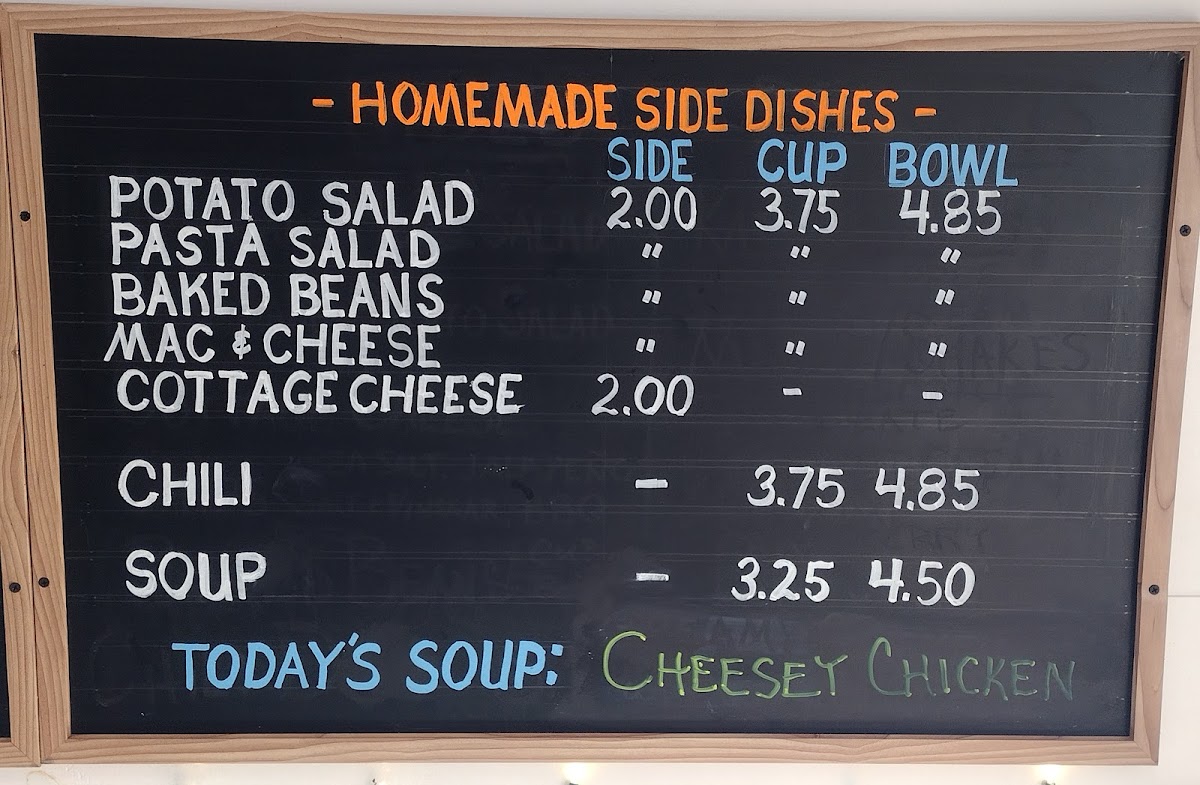 - HOMEMADE SIDE DISHES -
SIDE CUP BOWL
POTATO SALAD 2.00 3.75 4.85
PASTA SALAD " " "
BAKED BEANS " " "
MAC & CHEESE " " "
COTTAGE CHEESE 2.00 - -
CHILI - 3.75 4.85
SOUP - 3.25 4.50
TODAY'S SOUP: CHEESEY CHICKEN